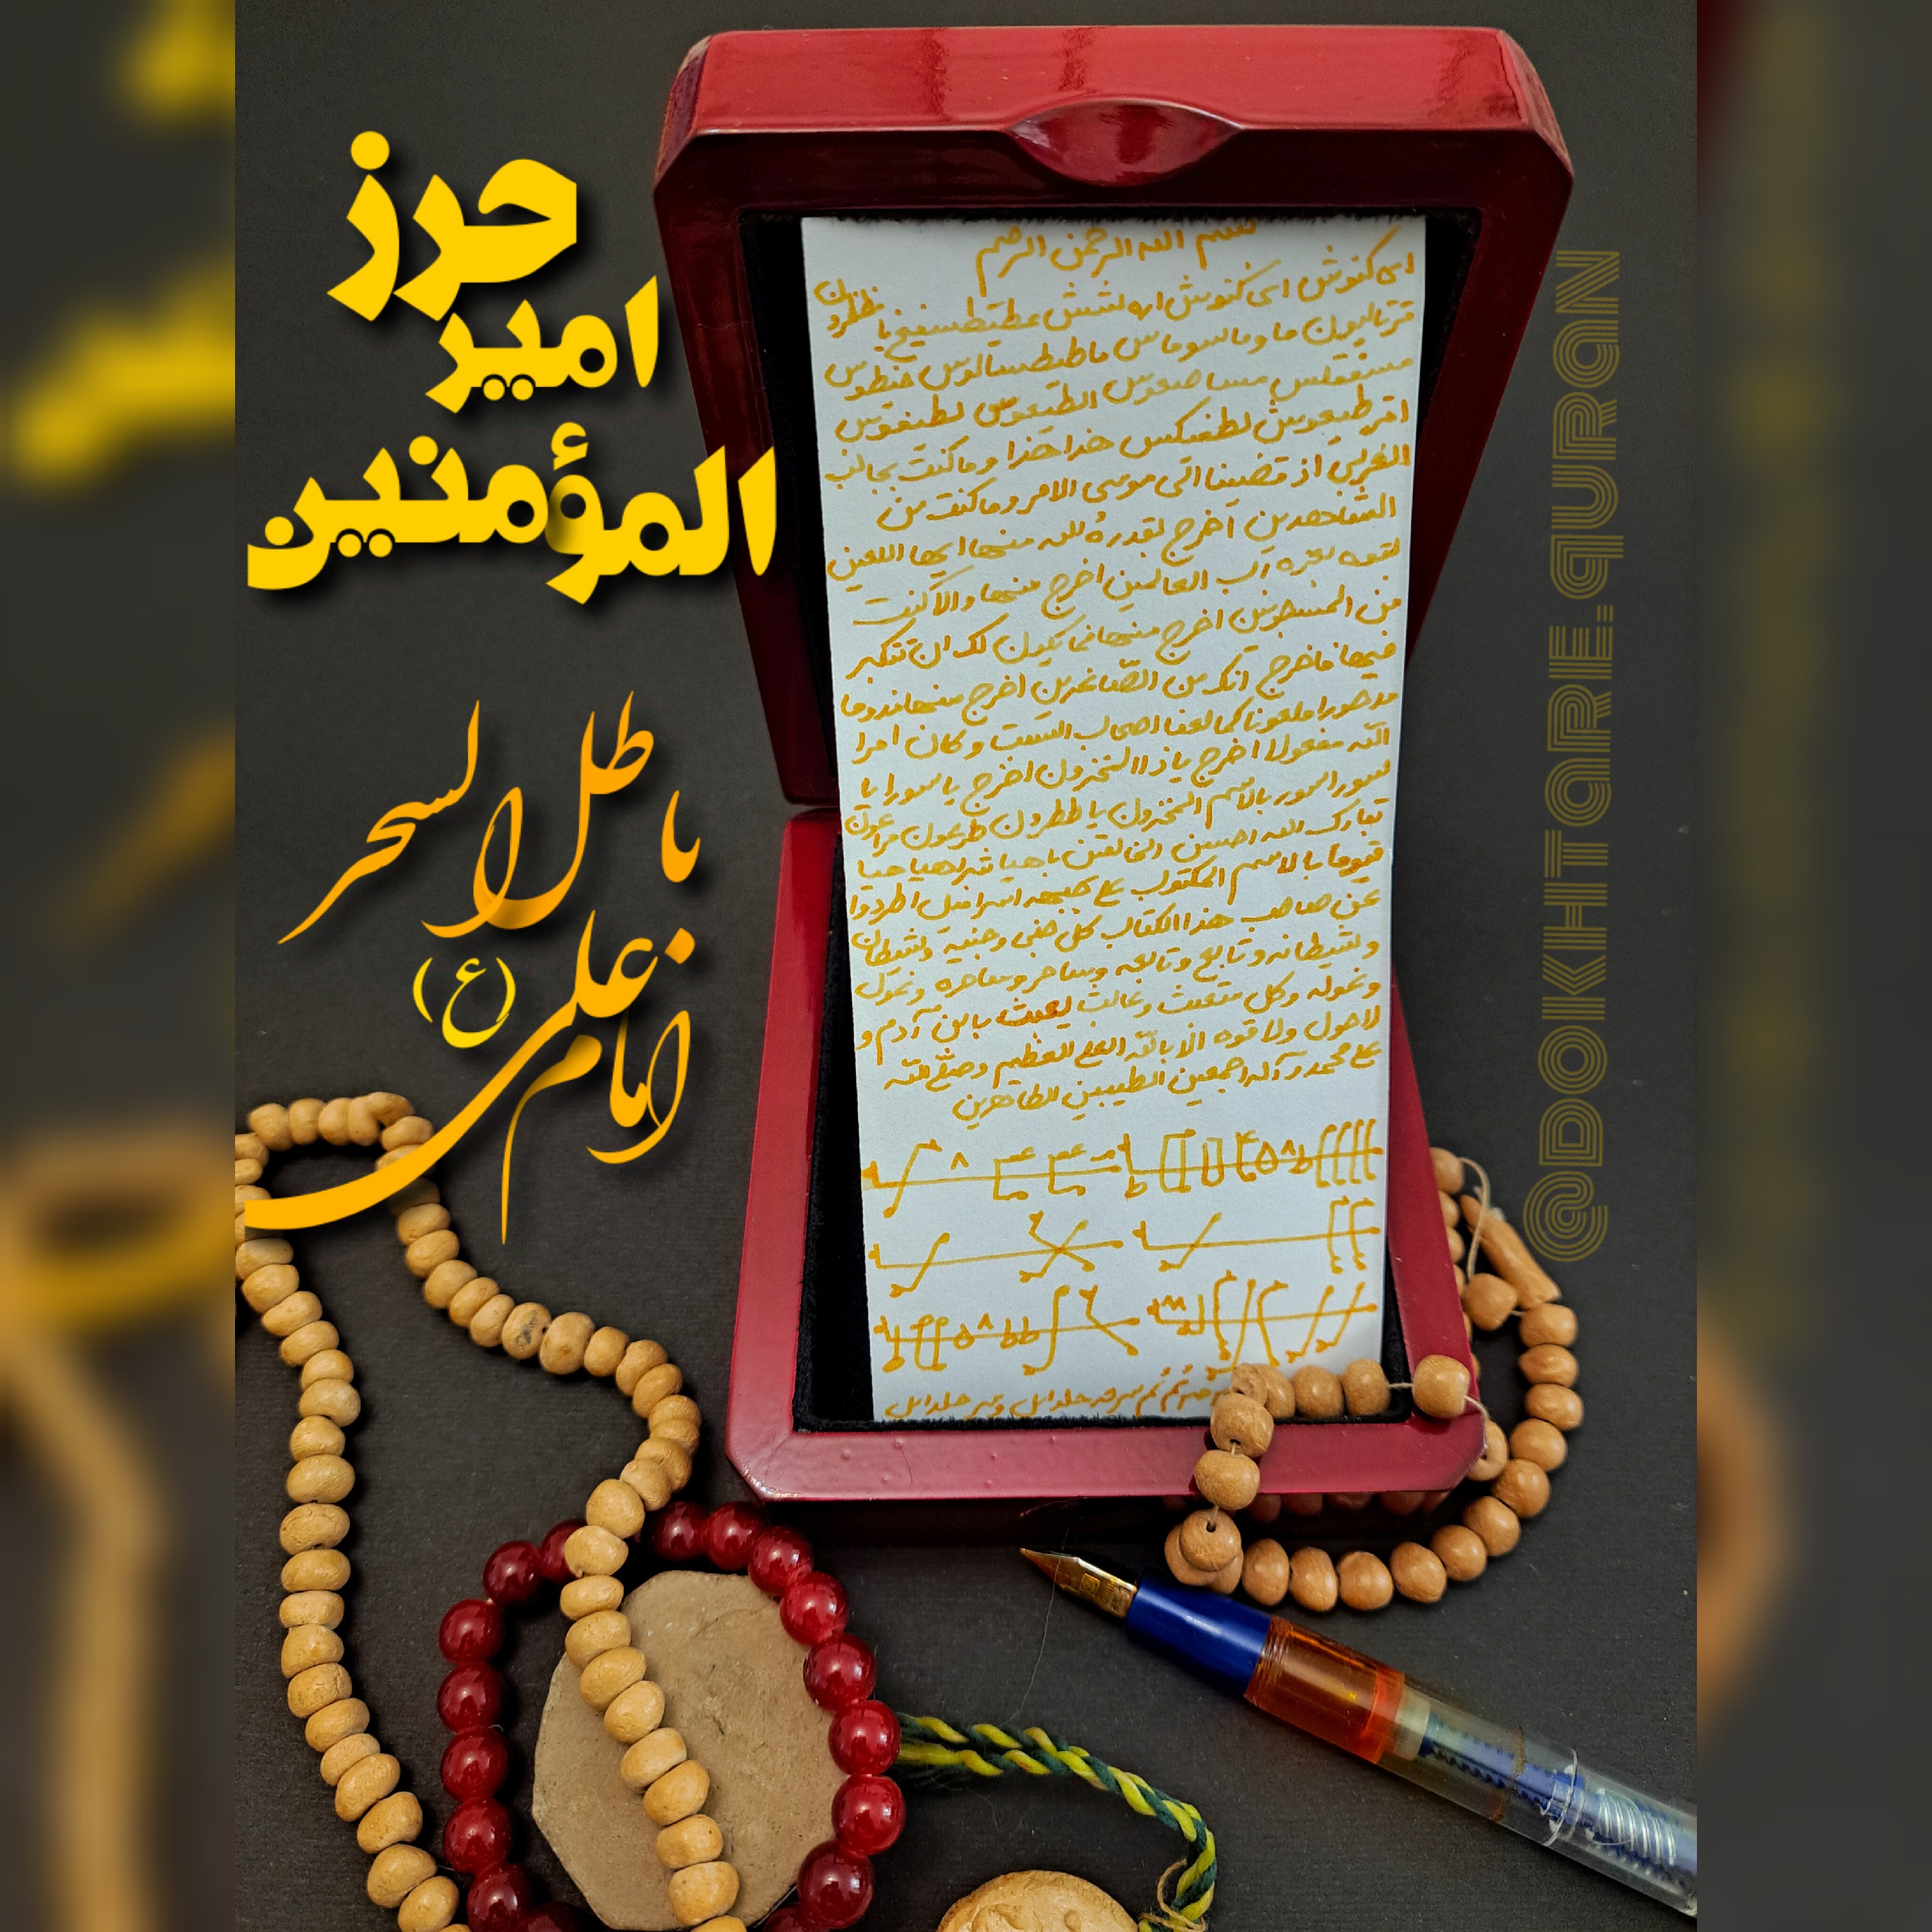 حرز
امیر
المؤمنین
باطل السحر
امام علی (ع)
@DOKHTARE.QURAN
بسم الله الرحمن الرحیم
ای کنوش ای کنوش
لطفیکس خدا خدا وما کنت بجانب
الغربی اذ قضینا الی موسی الامر وما کنت من
الشاهدین اخرج بقدرة الله منها ایها اللعین
بقوه بعزه رب العالمین اخرج منها والا کنت
من المسجونین اخرج منها فما یکون لک ان تتکبر
فیها فاخرج انک من الصاغرین اخرج منها مذوما
مدحورا ملعونا کما لعنا اصحاب السبت و کان امرا
الله مفعولا اخرج یا ذا المخزون اخرج یا سورا یا
سورا سور بالاسم المخزون یا ططرون طرعون مراعون
تبارک الله احسن الخالقین یا هیا شراهیا حیا
قیوما بالاسم المکتوب علی جبهه اسرافیل اطردوا
عن صاحب هذا الکتاب کل جنی و جنیة و شیطان
و شیطانه و تابع و تابعه و ساحر و ساحره و غول
و غوله و کل متعبث و عابث یعبث بابن آدم و
لاحول ولا قوه الا بالله العلی العظیم وصلی الله
علی محمد و آله اجمعین الطیبین الطاهرین